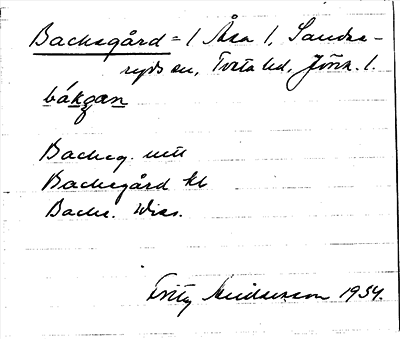 Backegård = 1 Åsa 1, Sandse-
ryds sn, Tveta hd, Jönk. l.
bákgan
Backeg. mtl
Backegård kl
Backe. Wiss.
Fritz 1934.